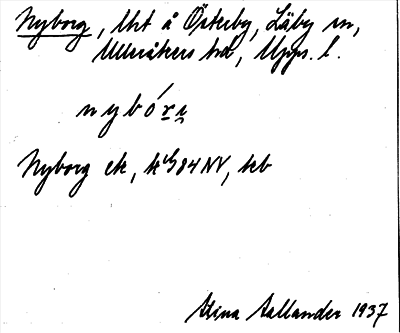 Nyborg, lht å Österby, Läby sn,
Ulleråkers hd, Upps. l.
nybóri̯
Nyborg ek, k 84 NV, hcb
Stina Sallander 1937